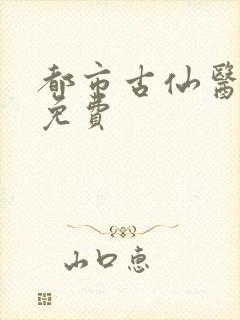 都市古仙醫
免費
山口惠